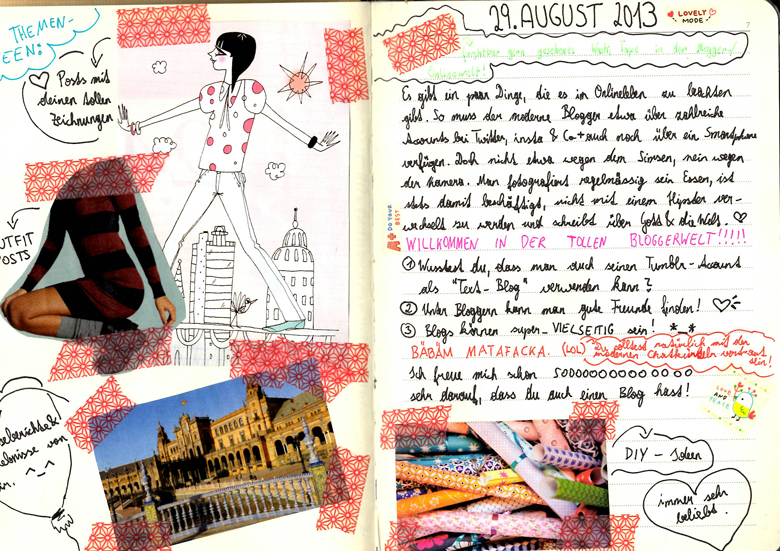 THEMEN-
EEN:
Posts mit
deinen tollen
Zeichnungen
OUTFIT
POSTS
^_^
29. AUGUST 2013
LOVELY
MODE
7
Tipps in der Blogger/
Onlinewelt!
Es gibt ein paar Dinge, die es im Onlineleben zu beachten
gibt. So muss der moderne Blogger etwa über zahlreiche
Accounts bei Twitter, insta & Co + auch noch über ein Smartphone
verfügen. Doch nicht etwa wegen dem Simsen, nein wegen
der Kamera. Man fotografiert regelmässig sein Essen, ist
stets damit beschäftigt, nicht mit einem Hipster ver-
wechselt zu werden und schreibt über Gott & die Welt.
A+ DO YOUR BEST
WILLKOMMEN IN DER TOLLEN BLOGGERWELT!!!!!
① Wusstest du, dass man auch seinen Tumblr-Account
als "Text-Blog" verwenden kann?
② Unter Bloggern kann man gute Freunde finden!
③ Blogs können super-VIELSEITIG sein! *_*
BÄBÄM MATAFACKA. (LOL)
Du solltest natürlich mit der
modernen Chatkürzeln vertraut
sein!
Ich freue mich schon SOOOOOOOOOOO OO OO
sehr darauf, dass du auch einen Blog hast!
LOVE
AND
PEACE
DIY - Ideen
immer sehr
beliebt.